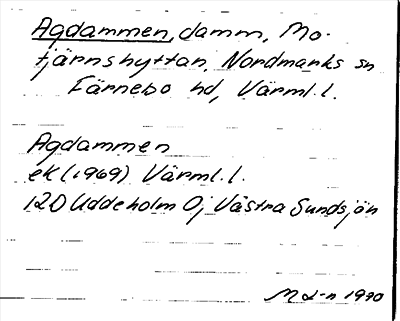 Agdammen, damm, Mo-
tjärnshyttan, Nordmarks sn
Färnebo hd, Värml. l.
Agdammen
ek (1969) Värml. l.
12D Uddeholm 0j Västra Sundsjön
1990